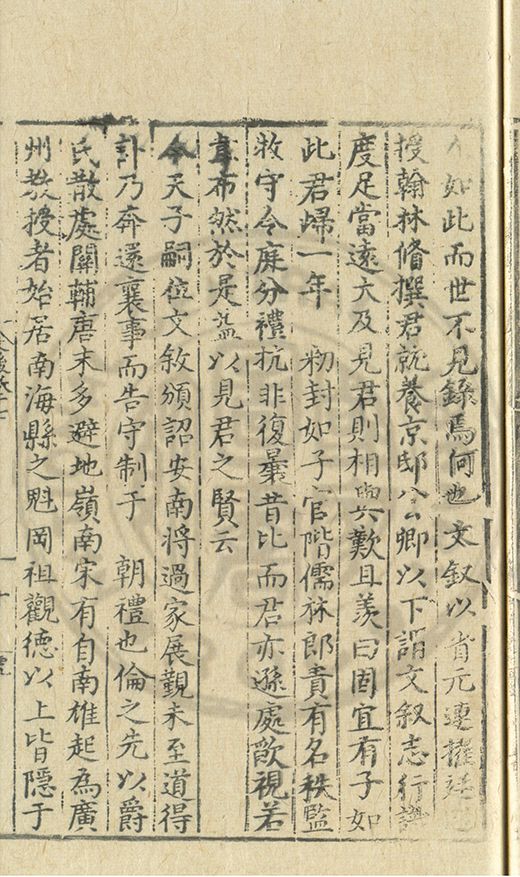 如此而世不見錄焉何也文叙以省元連擢廷
授翰林脩撰君就養京邸公卿以下詣文叙志行
度足當遠大及見君則相與歎且羨曰固宜有子如
此君歸一年 勑封如子官階儒林郎貴有名秩監
牧守令庭分禮抗非復曩昔比而君亦遜處飲視若
韋布然於是益以見君之賢云
今天子嗣位文敘頒詔安南將過家展覲未至道得
訃乃奔還襄事而告守制于 朝禮也倫之先以爵
氏散處關輔唐末多避地嶺南宋有自南雄起為廣
州教授者始居南海縣之魁岡祖觀德以上皆隱于